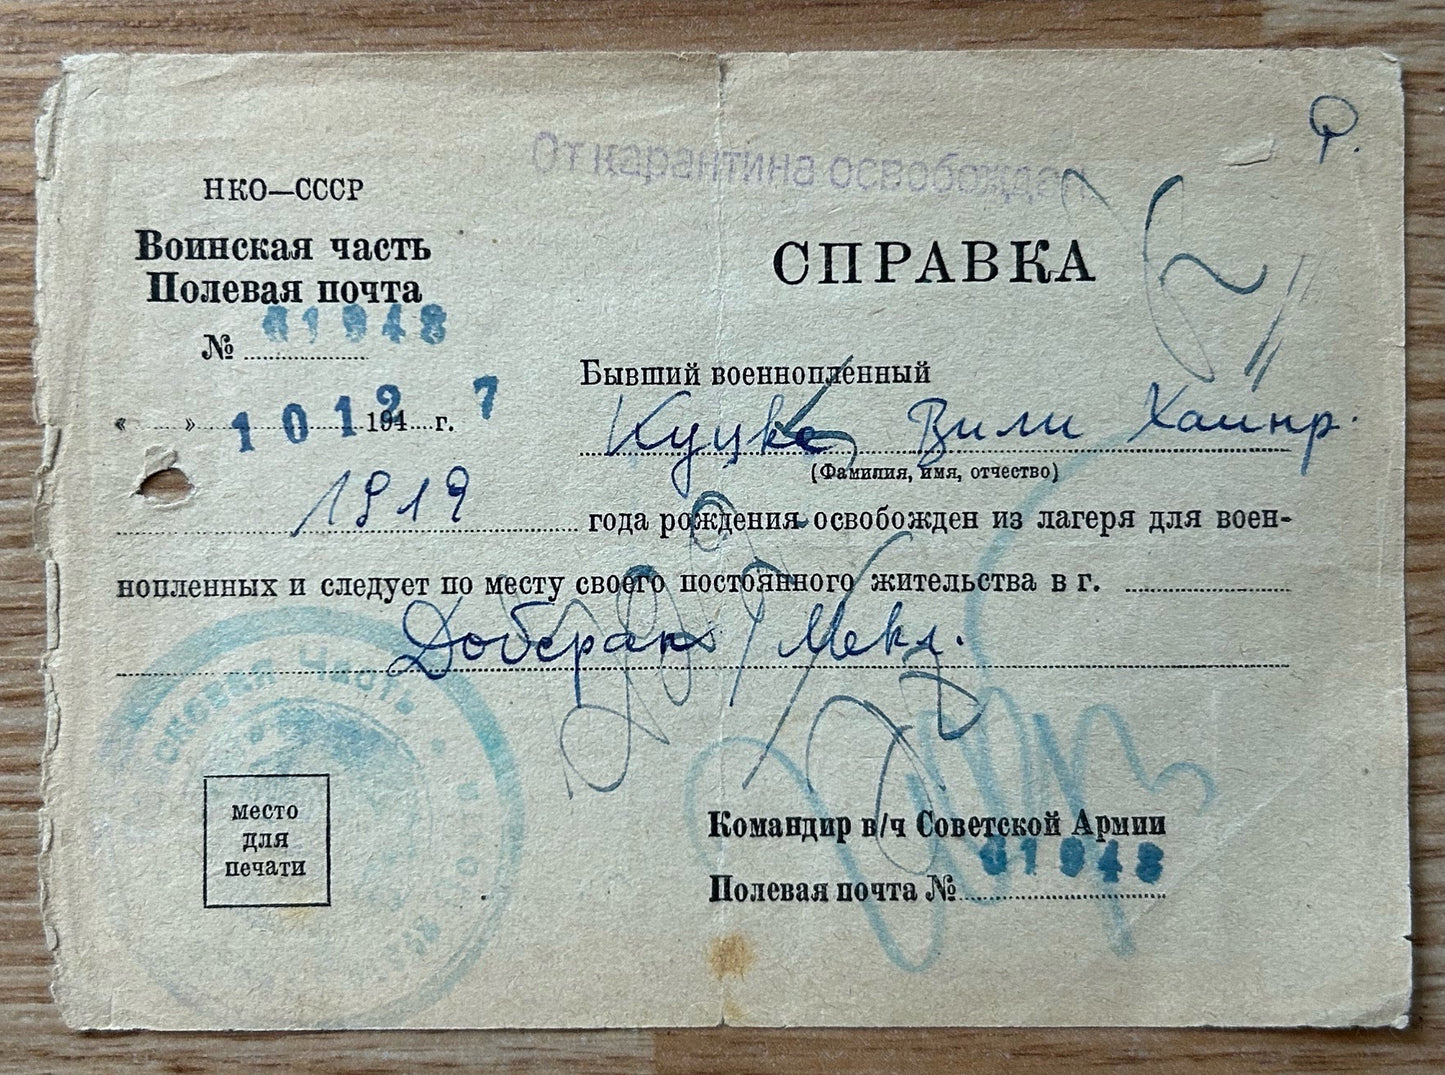 От карантина освобожден
НКО—СССР
Воинская часть
Полевая почта
№ 61948
СПРАВКА
« » 10 12 194 г. 7
Бывший военнопленный
Куцке Вили Хаинр.
(Фамилия, имя, отчество)
1919 года рождения освобожден из лагеря для воен-
нопленных и следует по месту своего постоянного жительства в г.
Доберан / Мекл.
место
для
печати
Командир в/ч Советской Армии
Полевая почта № 61948